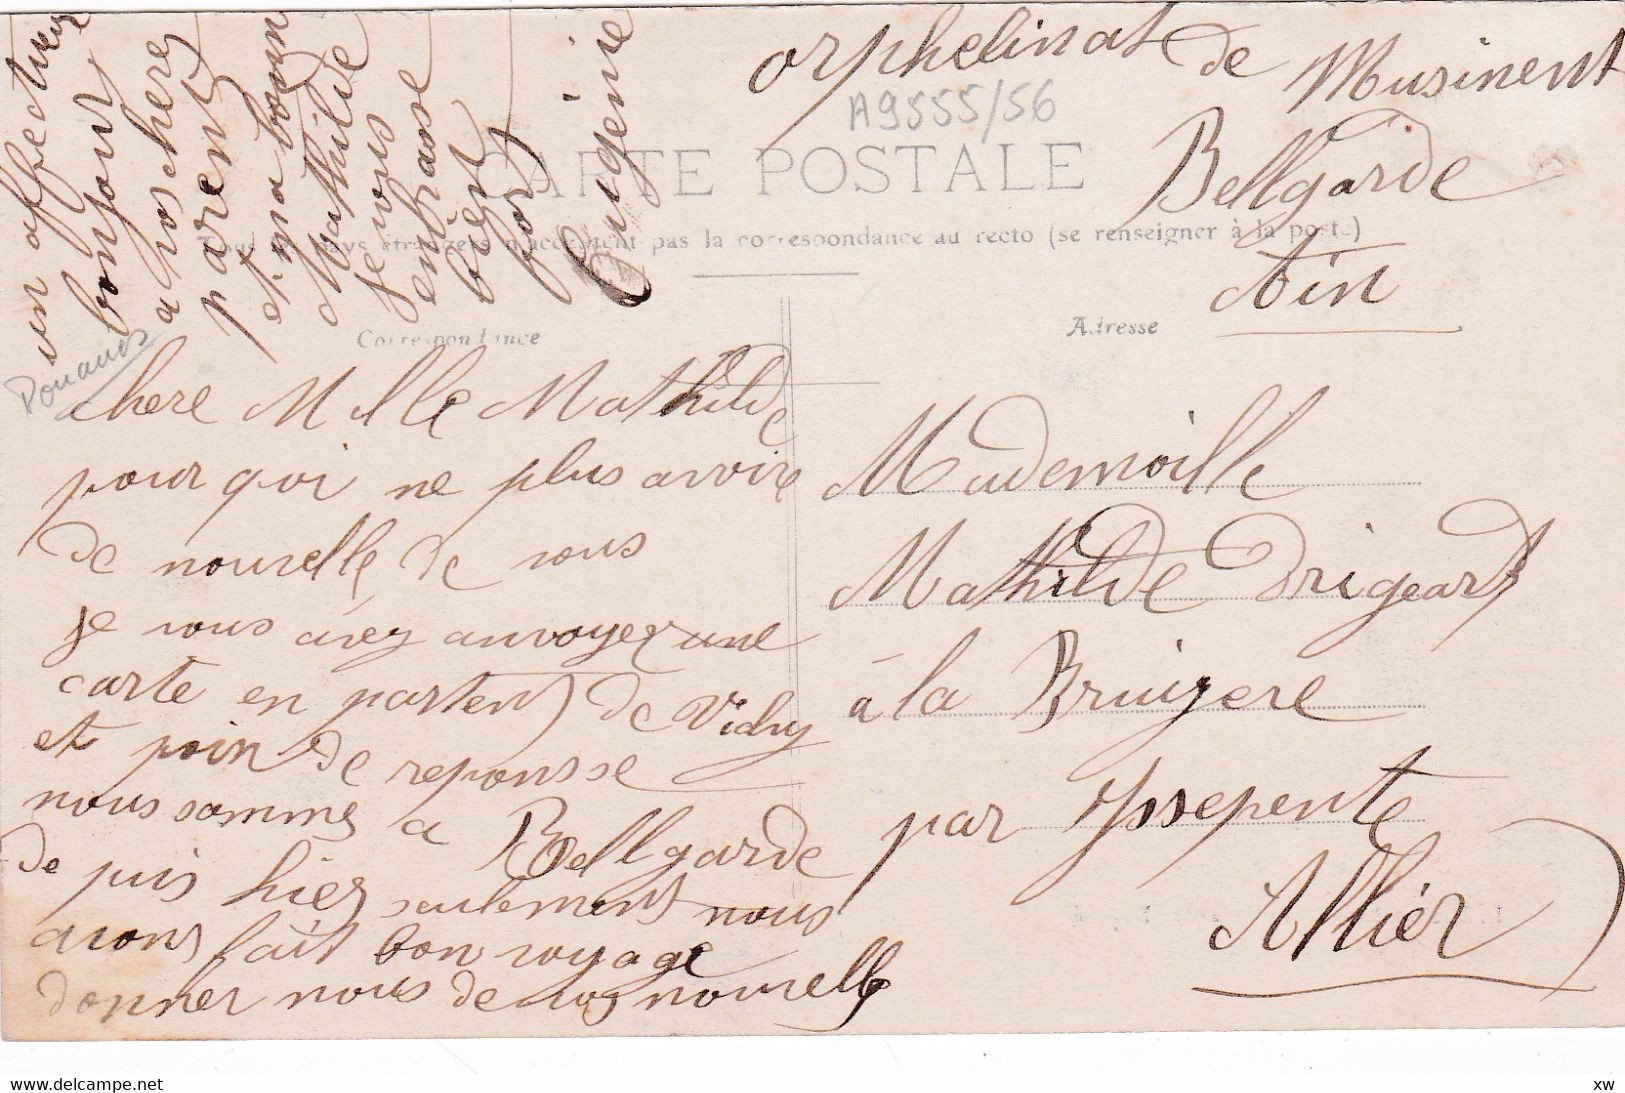 orphelinat de Musinent
Bellgarde
Ain
A9555/56
CARTE POSTALE
Tous les pays étrangers n'acceptent pas la correspondance au recto (se renseigner à la poste)
Correspondance
Adresse
Douanes
chere Mlle Mathilde
pour qoi ne plus avoire
de nouvelle de vous
je vous avez anvoyer une
carte en partent de Vichy
et poin de reponsse
nous somme a Bellgarde
de puis hier seulement nous
avons fait bon voyage
donner nous de vos nouvelle
un affectueux
bonjour
a vos chere
parent
et ma bonne
Mathilde
je vous
embrasse
bien
fort
Eugénie
Mademoille
Mathilde Drigeard
à la Bruigere
par Yssepente
Allier
www.delcampe.net
xw